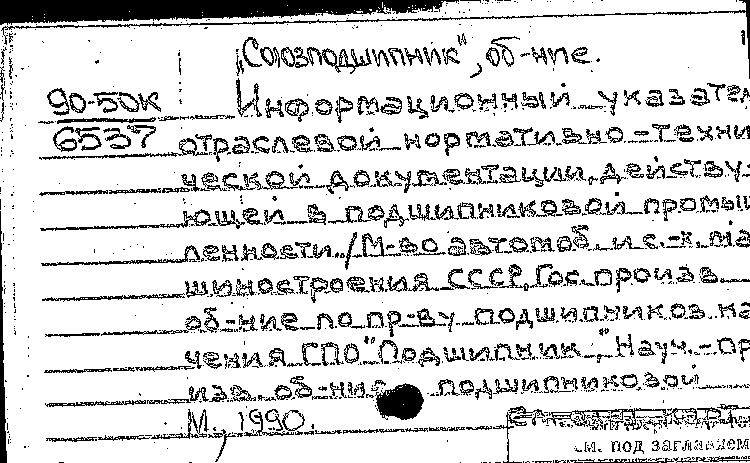 „Союзподшипник", об-ние.
90-50К
6537
Информационный указател
отраслевой нормативно-техни
ческой документации, действу-
ющей в подшипниковой промыш
ленности./М-во автомоб. и с.-х. ма
шиностроения СССР, Гос. произв.
об-ние по пр-ву подшипников ка
чения ГПО "Подшипник", Науч.-пр
изв. об-ние подшипниковой
М., 1990.
см. под заглавием